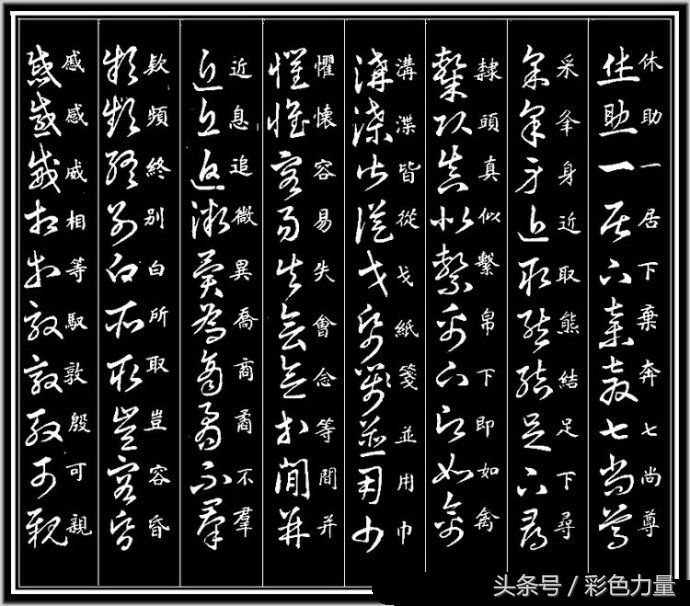 休助一居下棄奔七尚尊
采夆身近取熊結足下尋
隸頭真似繫帛下即如禽
溝渫皆從戈紙箋並用巾
懼懷容易失會念等間并
近息追微異喬商矞不羣
欸頻終別白所取豈容昏
感感威相等馭敦殷可親
头条号 / 彩色力量